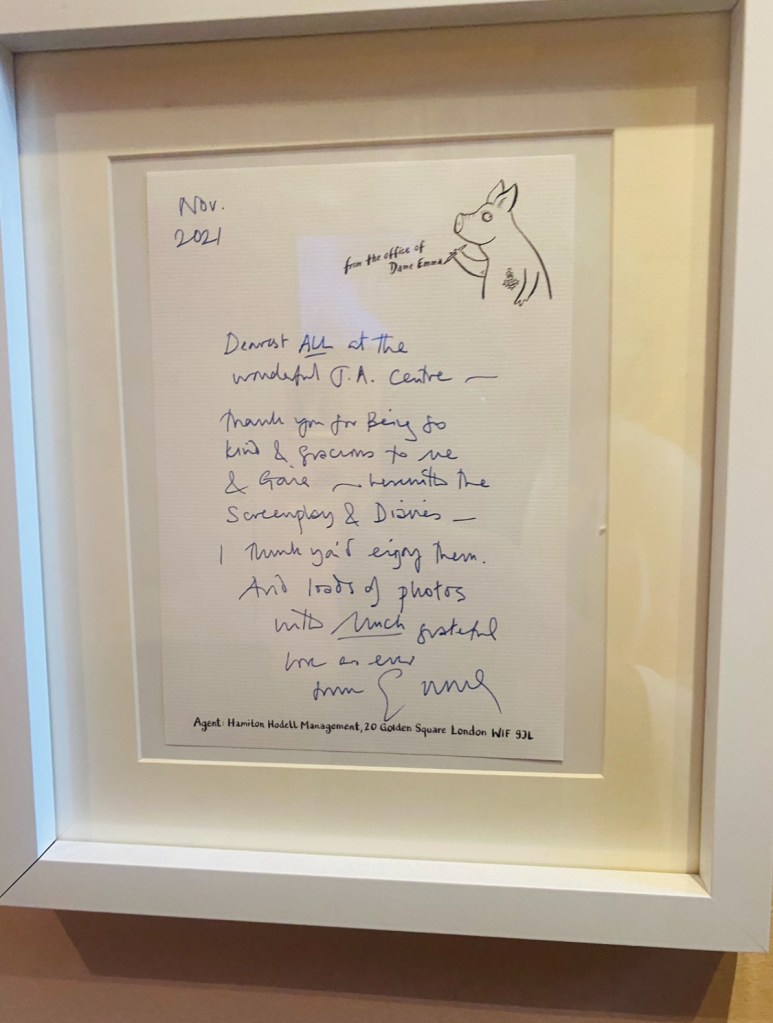 Nov.
2021
from the office of
Dame Emma
Dearest ALL at the
wonderful J.A. Centre —
Thank you for Being so
kind & gracious to me
& Gaia — herewith the
Screenplay & Diaries —
I think you'd enjoy them.
And loads of photos
with Much grateful
love as ever
from Emma
Agent: Hamilton Hodell Management, 20 Golden Square London W1F 9JL